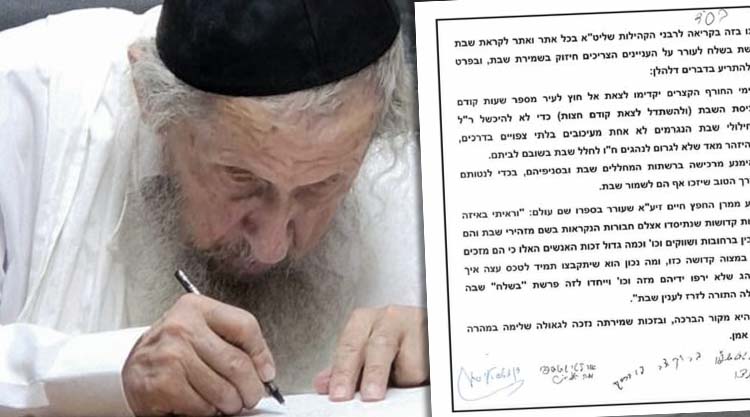 בס"ד
נו בזה בקריאה לרבני הקהילות שליט"א בכל אתר ואתר לקראת שבת
שת בשלח לעורר על העניינים הצריכים חיזוק בשמירת שבת, ובפרט
להתריע בדברים דלהלן:
ימי החורף הקצרים יקדימו לצאת אל חוץ לעיר מספר שעות קודם
ניסת השבת (ולהשתדל לצאת קודם חצות) כדי לא להיכשל ר"ל
חילולי שבת הנגרמים לא אחת מעיכובים בלתי צפויים בדרכים,
היזהר מאד שלא לגרום לנהגים ח"ו לחלל שבת בשובם לביתם.
הימנע מרכישה ברשתות המחללים שבת ובסניפיהם, בכדי לנטותם
דרך הטוב שיזכו אף הם לשמור שבת.
ע ממרן החפץ חיים זיע"א שעורר בספרו שם עולם: "וראיתי באיזה
ות קדושות שנתיסדו אצלם חבורות הנקראות בשם מזהירי שבת והם
בין ברחובות ושווקים וכו' וכמה גדול זכות האנשים האלו כי הם מזכים
במצוה קדושה כזו, ומה נכון הוא שיתקבצו תמיד לטכס עצה איך
הג שלא ירפו ידיהם מזה וכו' וייחדו לזה פרשת "בשלח" שבה
לה התורה לזרז לענין שבת".
היא מקור הברכה, ובזכות שמירתה נזכה לגאולה שלימה במהרה
אמן.